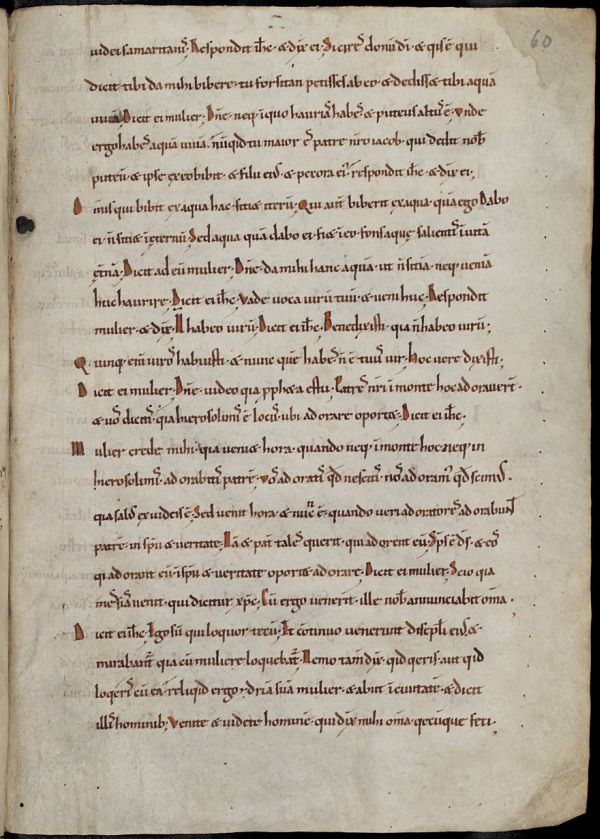 60
uidei samaritani; Respondit ihc ⁊ dix ei; Si cires donu di ⁊ qis e qui
dicit tibi da mihi bibere· tu forsitan petisses ab eo ⁊ dedisse tibi aquā
uiuā; Dicit ei mulier; Dn̄e· neq; ī quo haurias habes ⁊ puteus altus ē· unde
ergo habes aquā uiuā· nūqid tu maior es patre nr̄o iacob· qui dedit nob
puteū ⁊ ipse ex eo bibit· ⁊ filii ei ⁊ pecora ei; respondit ihc ⁊ dix ei;
Omis qui bibit ex aqua hac sitiet iterū; Qui aut biberit ex aqua· quā ego dabo
ei n̄ sitiet ī eternū; Sed aqua quā dabo ei· fiet ī eo fons aquę salientis ī uitā
ęt̄nā; Dicit ad eū mulier; Dn̄e· da mihi hanc aquā· ut n̄ sitiā· neq; ueniā
huc haurire; Dicit ei ihc; Vade uoca uirū tuū· ⁊ ueni huc; Respondit
mulier· ⁊ dix; N̄ habeo uirū; Dicit ei ihc; Bene dixisti· qia n̄ habeo uirū;
Quinq; eni uiros habuisti· ⁊ nunc quē habes n̄ ē tuus uir; Hoc uere dixisti;
Dicit ei mulier; Dn̄e· uideo qia ppheta es tu; Patres nr̄i ī monte hoc adorauert·
⁊ uos dicitis· qia hierosolimis ē locus ubi adorare oportet; Dicit ei ihc·
Mulier crede mihi· qia ueniet hora· quando neq; ī monte hoc neq; in
hierosolimis adorabitis patrē; Vos adoratis qd nescitis· nos adoram qd scimus·
qia salus ex iudeis ē; Sed uenit hora· ⁊ nunc ē· quando ueri adoratores adorabunt
patrē in spu ⁊ ueritate; Nā ⁊ pat tales querit· qui adorent eū; Sps ē ds· ⁊ eos
qi adorant eū· ī spu ⁊ ueritate oportet adorare; Dicit ei mulier; Scio qia
messias uenit· qui dicitur xpc; Cū ergo uenerit· ille nob annunciabit omia·
Dicit ei ihc; Ego sū qui loquor tecū; Et cōtinuo uenerunt discipli ei ⁊
mirabant qia cū muliere loquebat; Nemo tam dix· qid qeris· aut qid
loqeris cū ea· reliqid ergo ydriā suā mulier· ⁊ abiit ī ciuitatē· ⁊ dicit
illis hominib; Venite ⁊ uidete hominē· qui dix mihi omia· qecūque feci·